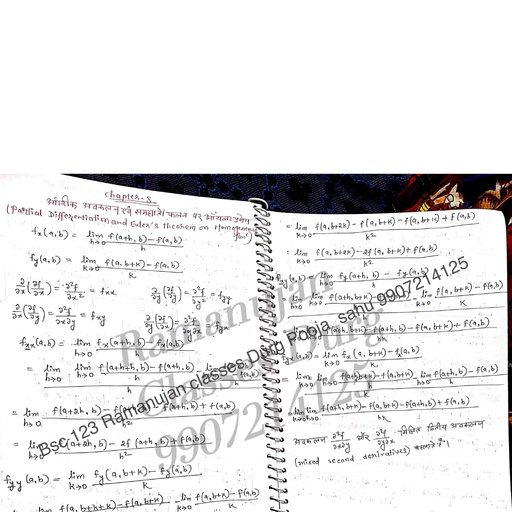 chapter-8
आंशिक अवकलन एवं समघाती फलन पर ऑयलर प्रमेय
(Partial Differentiation and Euler's Theorem on Homogeneous fun^n)
fx(a,b) = lim h→0 f(a+h, b) - f(a,b) / h
fy(a,b) = lim k→0 f(a,b+k) - f(a,b) / k
∂/∂x (∂f/∂x) = ∂²f/∂x² = fxx ∂/∂y (∂f/∂y) = ∂²f/∂y² = fyy
∂/∂x (∂f/∂y) = ∂²f/∂x∂y = fxy ∂/∂y (∂f/∂x) = ∂²f/∂y∂x = fyx
fxx(a,b) = lim h→0 fx(a+h,b) - fx(a,b) / h
= lim h→0 lim h→0 f(a+h+h,b) - f(a+h,b) / h - lim h→0 f(a+h,b) - f(a,b) / h
= lim h→0 f(a+2h,b) - f(a+h,b) - f(a+h,b) + f(a,b) / h²
= lim h→0 f(a+2h,b) - 2f(a+h,b) + f(a,b) / h²
fyy(a,b) = lim k→0 fy(a,b+k) - fy(a,b) / k
f(a,b+k+k) - f(a,b+k) - lim k→0 f(a,b+k) - f(a,b)
= lim k→0 f(a,b+2k) - f(a,b+k) - f(a,b+k) + f(a,b) / k²
= lim k→0 f(a,b+2k) - 2f(a,b+k) + f(a,b) / k²
fxy(a,b) = lim h→0 fy(a+h,b) - fy(a,b) / h
f(a+h,b+k) - f(a+h,b) - lim k→0 f(a,b+k) - f(a,b) / k
f(a+h,b+k) - f(a+h,b) - f(a,b+k) + f(a,b) / hk
fyx(a,b) = lim k→0 fx(a,b+k) - fx(a,b) / k
f(a+h,b+k) - f(a,b+k) / h - lim h→0 f(a+h,b) - f(a,b) / h
= lim k→0 lim h→0 f(a+h,b+k) - f(a,b+k) - f(a+h,b) + f(a,b) / hk
अवकलज ∂²f/∂x∂y और ∂²f/∂y∂x मिश्रित द्वितीय अवकलज
(mixed second derivatives) कहलाते हैं।
Ramanujan
Classes Durg
9907214125
Bsc 123 Ramanujan classes Durg Pooja sahu 9907214125